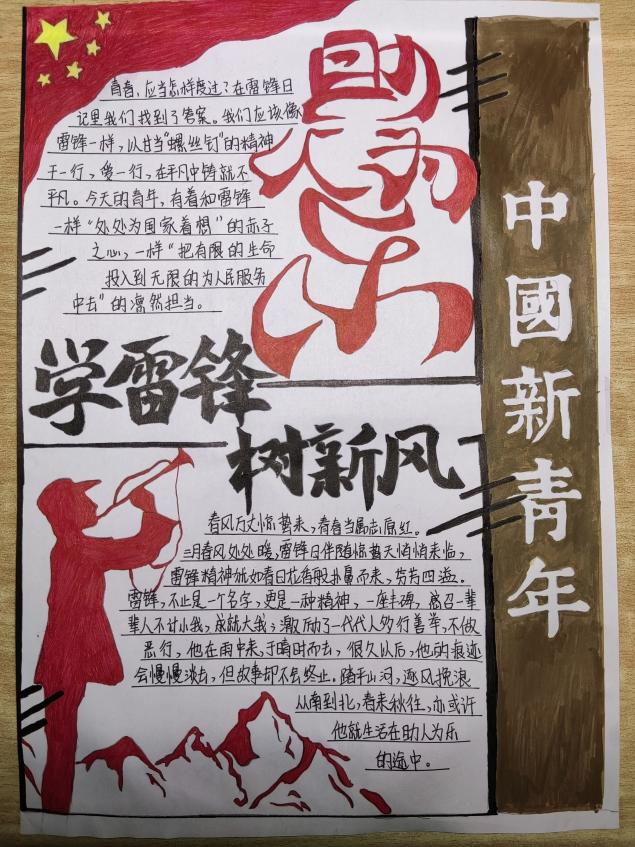 青春，应当怎样度过？在雷锋日
记里我们找到了答案。我们应该像
雷锋一样，以甘当"螺丝钉"的精神
干一行，爱一行，在平凡中铸就不
平凡。今天的青年，有着和雷锋
一样"处处为国家着想"的赤子
之心，一样"把有限的生命
投入到无限的为人民服务
中去"的凛然担当。
助人为乐
中國新青年
学雷锋
树新风
春风万丈惊蛰来，青春当属志愿红。
三月春风处处暖，雷锋日伴随惊蛰天悄悄来临，
雷锋精神就如春日花香般扑鼻而来，芬芳四溢。
雷锋，不止是一个名字，更是一种精神，一座丰碑，感召一辈
辈人不计小我，成就大我；激励了一代代人多行善举，不做
恶行，他在雨中来，于晴时而去，很久以后，他的痕迹
会慢慢淡去，但故事却不会终止。踏平山河，逐风挽浪
从南到北，春来秋往，亦或许
他就生活在助人为乐
的途中。